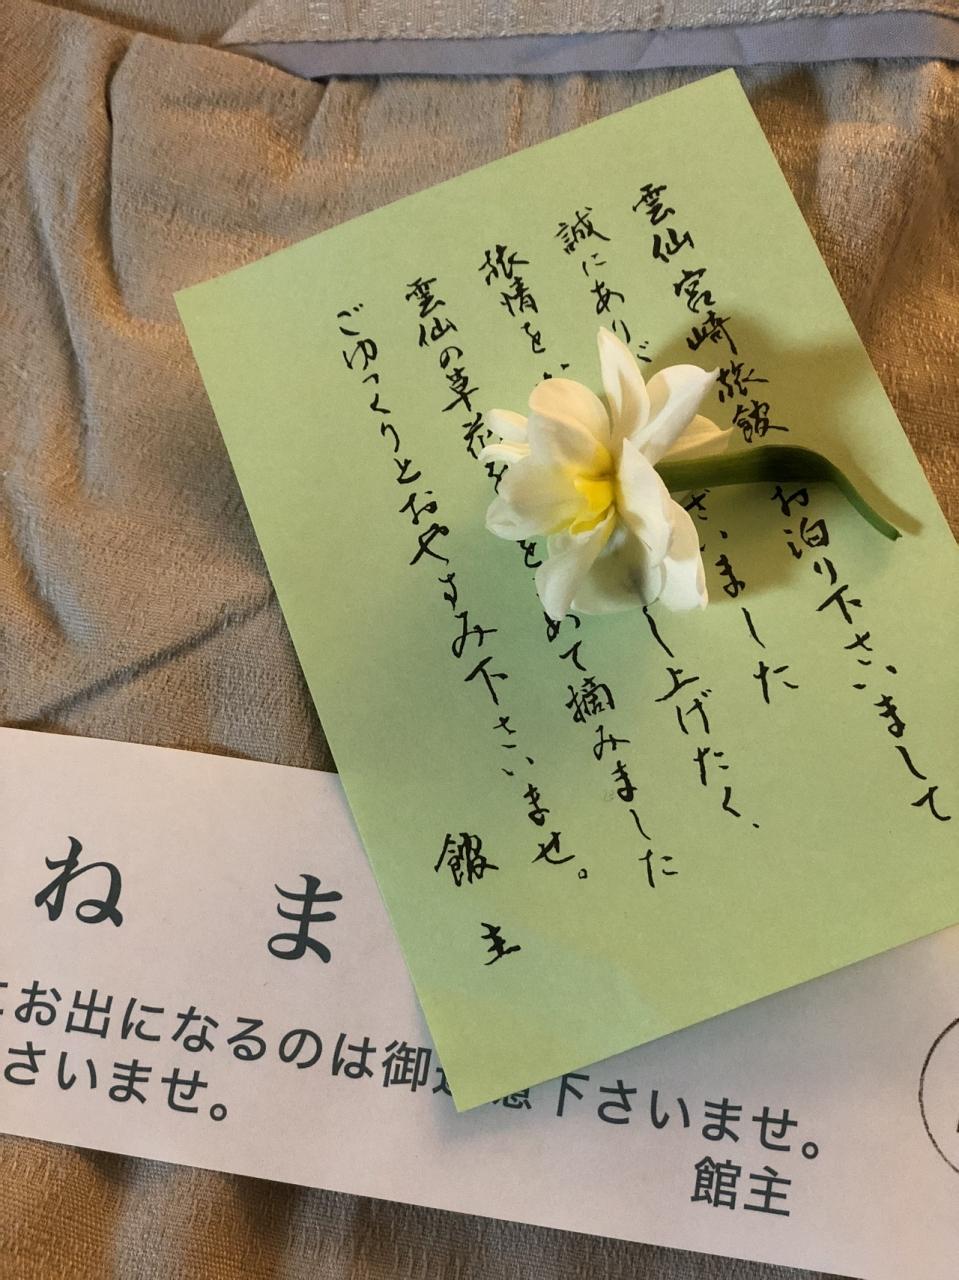 雲仙宮崎旅館 お泊り下さいまして
誠にありがざいました
旅情を し上げたく、
雲仙の草花を を めて摘みました
ごゆっくりとおやすみ下さいませ。
館主
ねま
にお出になるのは御 慮下さいませ。
さいませ。
館主